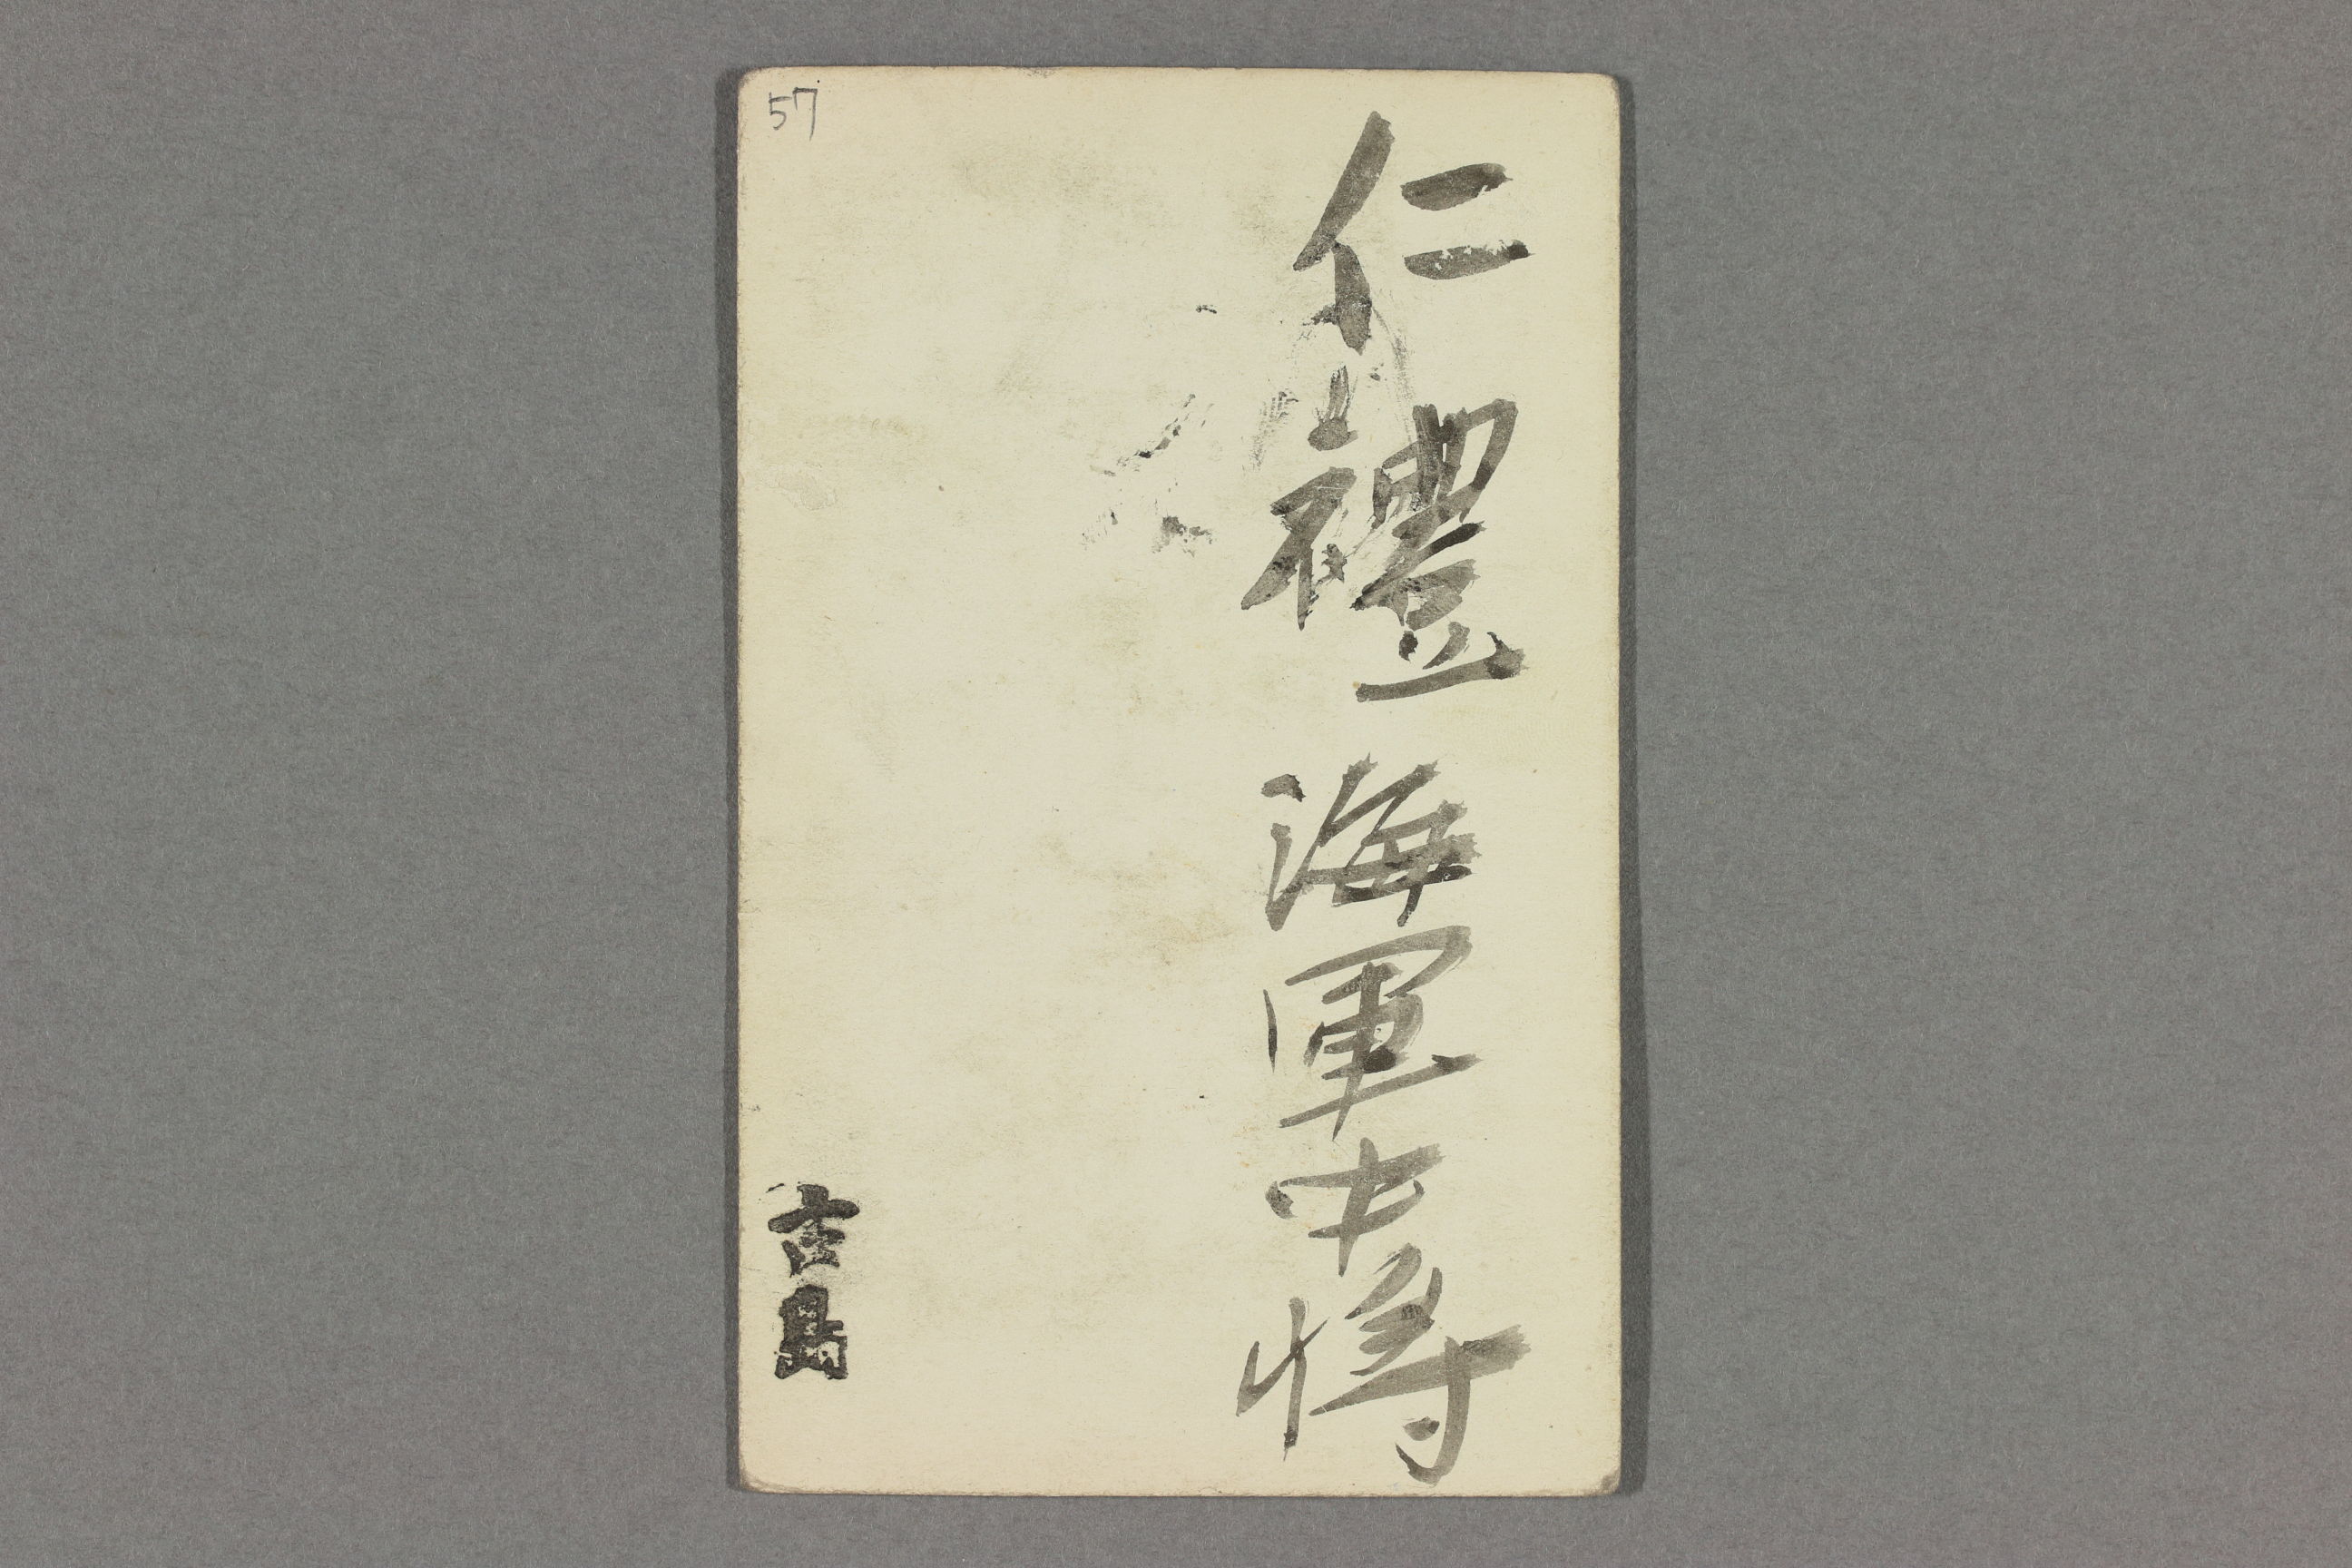 57
仁禮海軍中将
古島